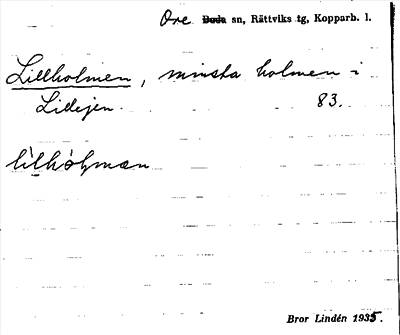 Ore Boda sn, Rättviks tg, Kopparb. l.
Lillholmen, minsta holmen i
Lidejen. 83.
lìlhòḷman
Bror Lindén 1935.